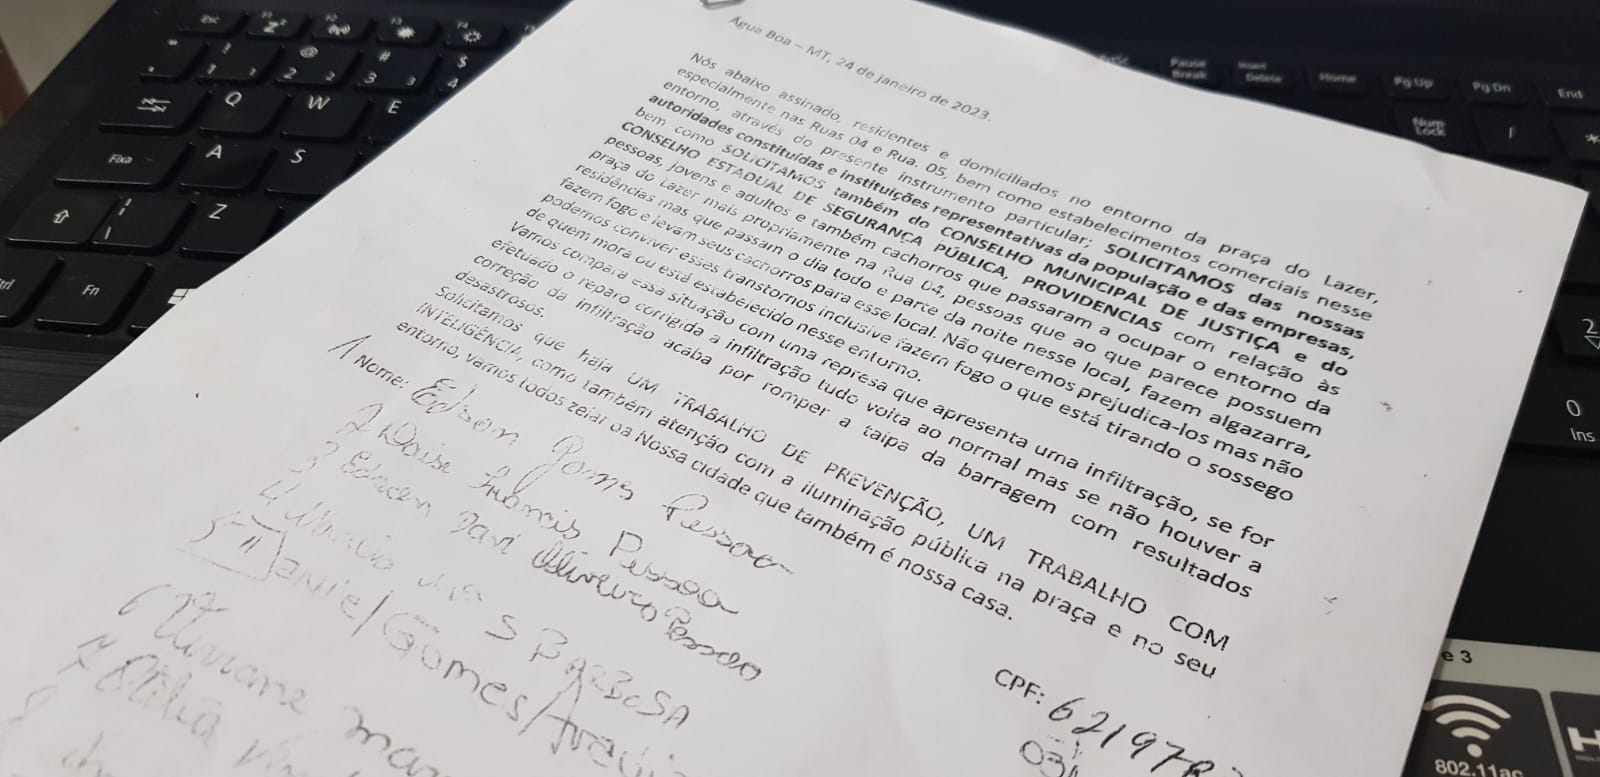 Água Boa – MT, 24 de janeiro de 2023.
Nós abaixo assinado, residentes e domiciliados no entorno da praça do Lazer,
especialmente nas Ruas 04 e Rua. 05, bem como estabelecimentos comerciais nesse
entorno, através do presente instrumento particular; SOLICITAMOS das nossas
autoridades constituídas e instituições representativas da população e das empresas,
bem como SOLICITAMOS também do CONSELHO MUNICIPAL DE JUSTIÇA e do
CONSELHO ESTADUAL DE SEGURANÇA PÚBLICA, PROVIDENCIAS com relação às
pessoas, jovens e adultos e também cachorros que passaram a ocupar o entorno da
praça do Lazer mais propriamente na Rua 04, pessoas que ao que parece possuem
residências mas que passam o dia todo e parte da noite nesse local, fazem algazarra,
fazem fogo e levam seus cachorros para esse local. Não queremos prejudica-los mas não
podemos conviver esses transtornos inclusive fazem fogo o que está tirando o sossego
de quem mora ou está estabelecido nesse entorno.
Vamos compara essa situação com uma represa que apresenta uma infiltração, se for
efetuado o reparo corrigida a infiltração tudo volta ao normal mas se não houver a
correção da infiltração acaba por romper a taipa da barragem com resultados
desastrosos.
Solicitamos que haja UM TRABALHO DE PREVENÇÃO, UM TRABALHO COM
INTELIGÊNCIA, como também atenção com a iluminação pública na praça e no seu
entorno, vamos todos zelar da Nossa cidade que também é nossa casa.
1 Nome: Edson Gomes Pessoa CPF: 62197
2 Francis Pessoa 03
3 Davi Oliveira Pessoa
4 S BARBOSA
5 Gomes
6
7
Esc
Q W E
A S
Z
Fixa
Fn
Pause
Break
Insert
Delete
Home
Pg Up
Pg Dn
End
Num
Lock
0
Ins
e 3
802.11ac